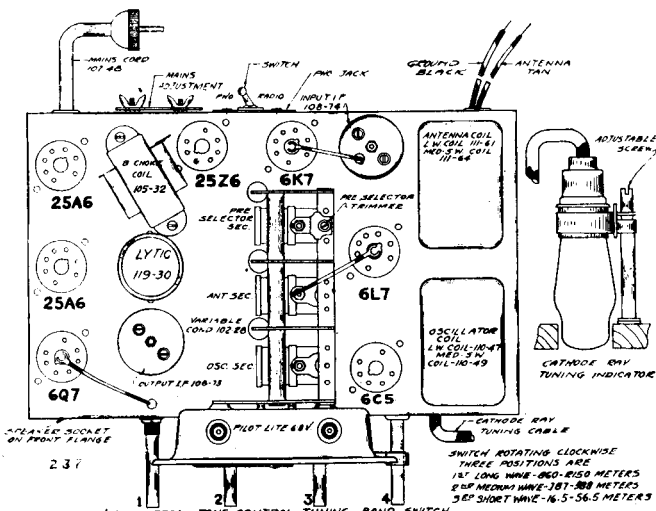 MAINS CORD
107-48
MAINS
ADJUSTMENT
SWITCH
PHO RADIO
PHO. JACK
INPUT I.F
108-74
GROUND
BLACK
ANTENNA
TAN
ANTENNA COIL
L W COIL 111-61
MED-SW COIL
111-64
ADJUSTABLE
SCREW
25A6
B CHOKE
COIL
105-32
25Z6
6K7
PRE
SELECTOR
SEC.
PRE SELECTOR
TRIMMER
LYTIC
119-30
25A6
6L7
ANT SEC.
VARIABLE
COND 102-28
OSCILLATOR
COIL
L W COIL-110-47
MED-SW
COIL-110-49
CATHODE RAY
TUNING INDICATOR
OSC. SEC.
6Q7
OUTPUT I.F 108-73
6C5
SPEAKER SOCKET
ON FRONT FLANGE
PILOT LITE 6.8V
CATHODE RAY
TUNING CABLE
237
SWITCH ROTATING CLOCKWISE
THREE POSITIONS ARE
1ST LONG WAVE-860-2150 METERS
2ND MEDIUM WAVE-187-588 METERS
3RD SHORT WAVE-16.5-56.5 METERS
1 2 3 4
TONE CONTROL TUNING BAND SWITCH